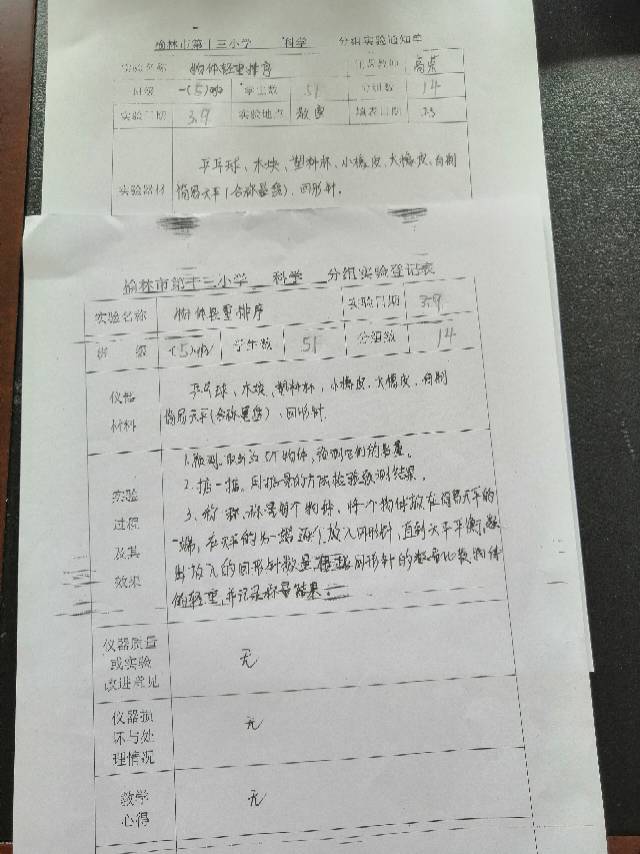 榆林市第十三小学 科学 分组实验通知单
实验名称 物体轻重排序 任课教师
班级 一(5) 学生数 51 分组数 14
实验日期 3.9 实验地点 教室 填表日期
实验器材 乒乓球、木块、塑料杯、小橡皮、大橡皮、自制
简易天平(含称量盘)、回形针。
榆林市第十三小学 科学 分组实验登记表
实验名称 物体轻重排序 实验日期 3.9
班级 一(5) 学生数 51 分组数 14
仪器 乒乓球、木块、塑料杯、小橡皮、大橡皮、自制
材料 简易天平(含称量盘)、回形针。
1.预测。取出这5个物体,预测它们的轻重。
实验 2.掂一掂。用掂量的方法检验预测结果。
过程 3、称一称。称量每个物体,将一个物体放在简易天平的
及其 一端,在天平的另一端逐个放入回形针,直到天平平衡,数
效果 出放入的回形针数量,根据回形针的数量比较物体
的轻重,并记录称量结果。
仪器质量
或实验 无
改进意见
仪器损
坏与处 无
理情况
教学 无
心得